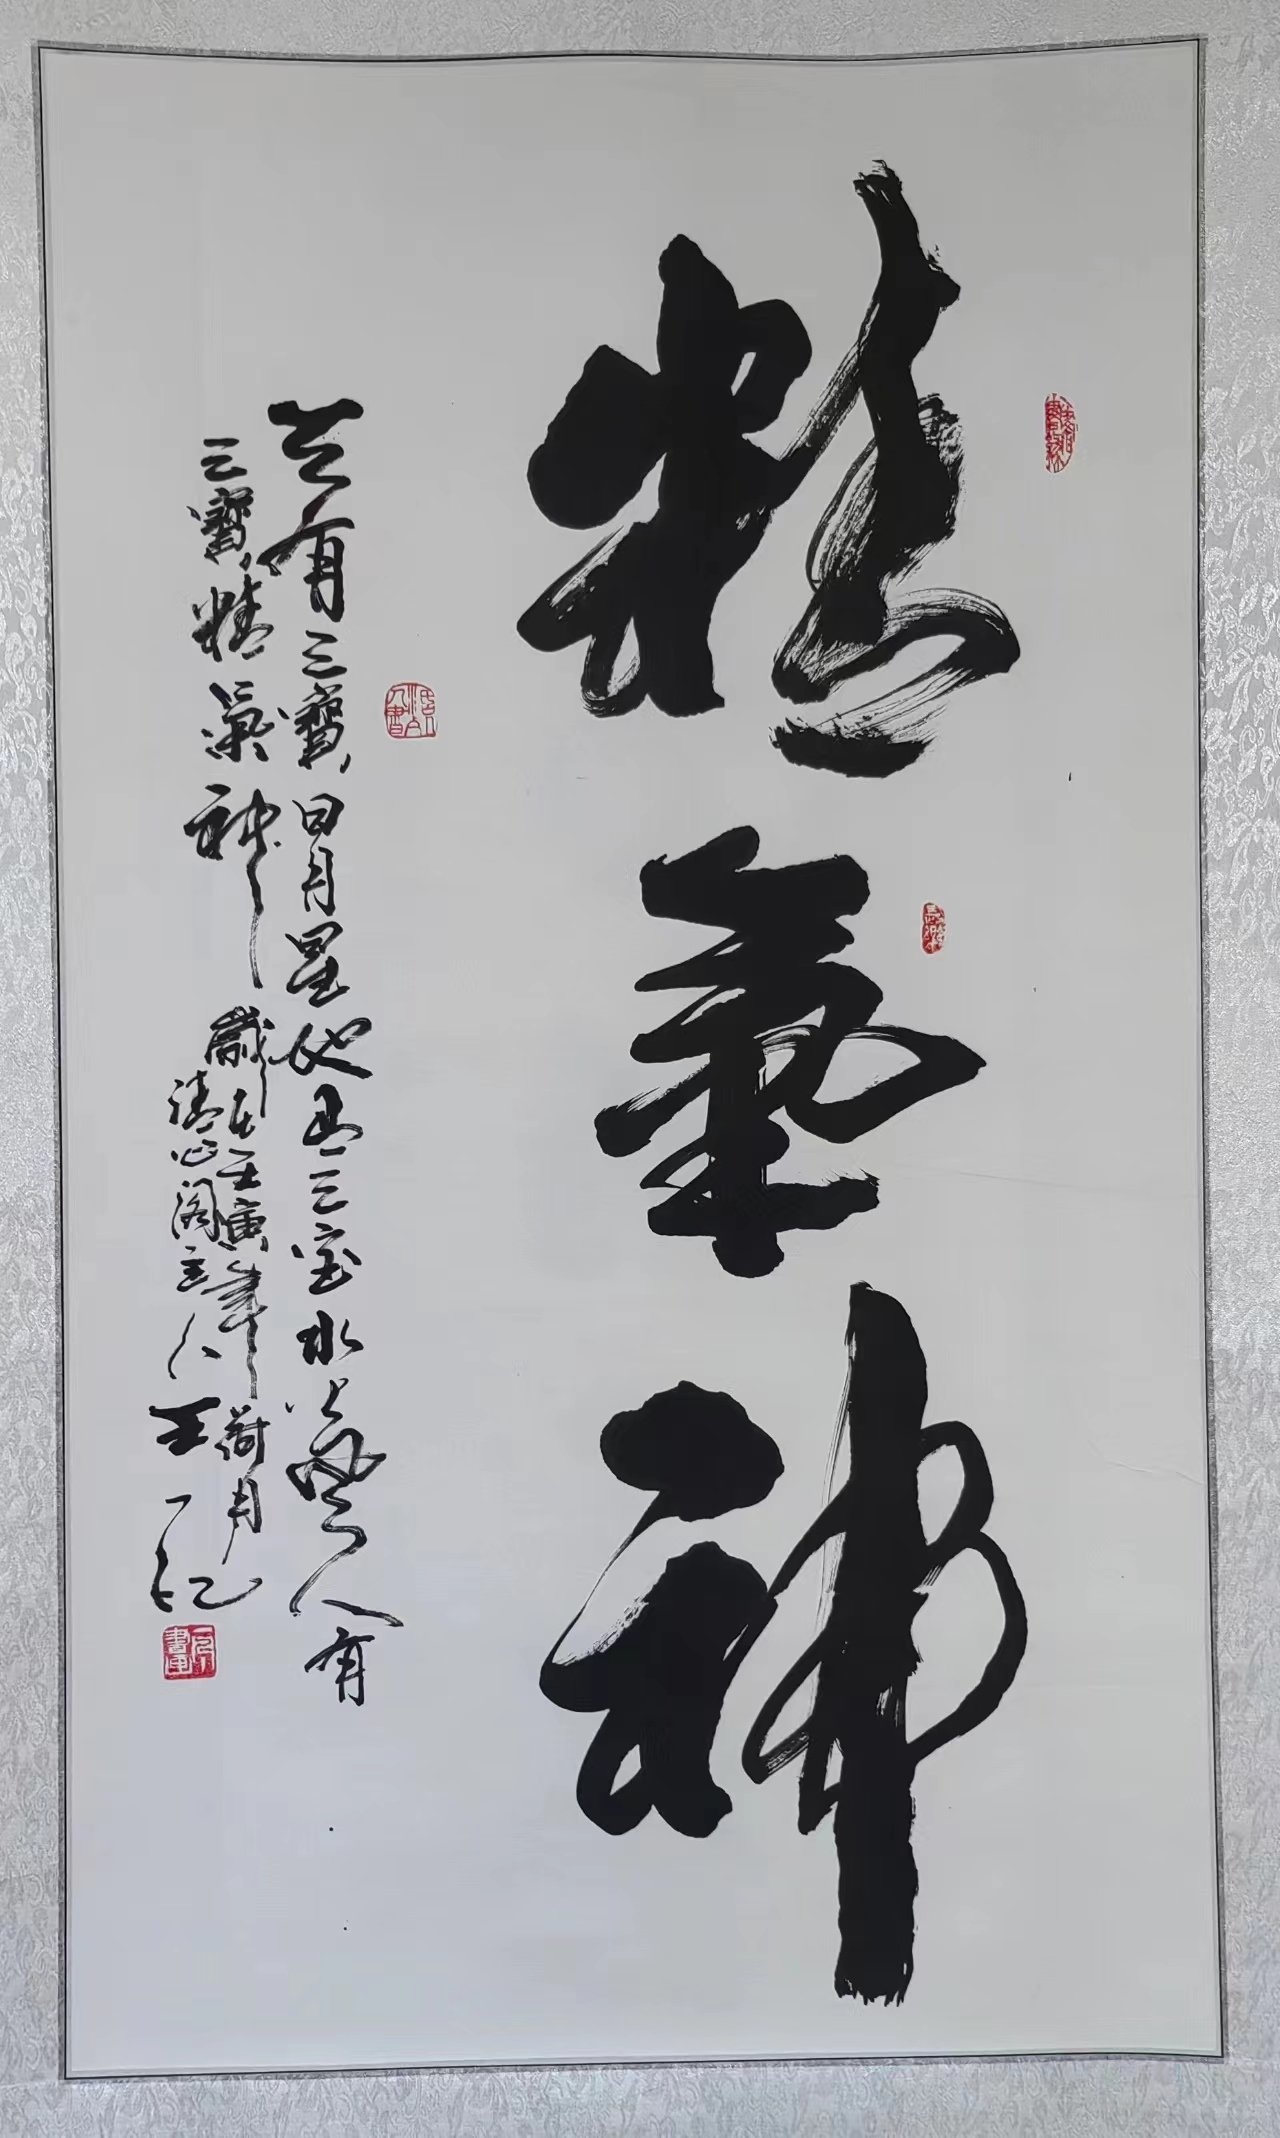 精氣神
天有三寶日月星地有三宝水火風人有
三寶精氣神
歲在壬寅年荷月
清心阁主人王一